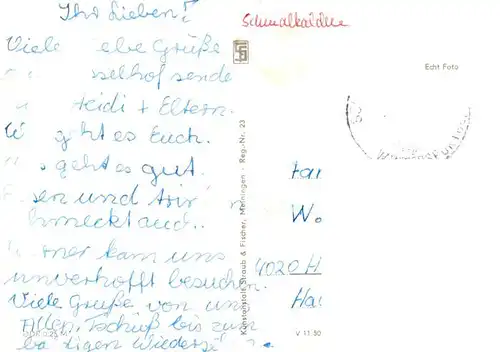 Ihr Lieben!
Viele ebe Grüße
selhof sende
Heidi + Eltern.
W geht es Euch.
s geht es gut.
sen und Tri
hmeckt auch..
rner kam uns
unverhofft besuchen.
Viele Grüße von uns
Allen, Tschüß bis zum
ba digen Wiederse
Schmalkalden
Echt Foto
Kunstanstalt Straub & Fischer, Meiningen - Reg.-Nr. 23
Fam
Wo
4020 H
Hal
V 11 50